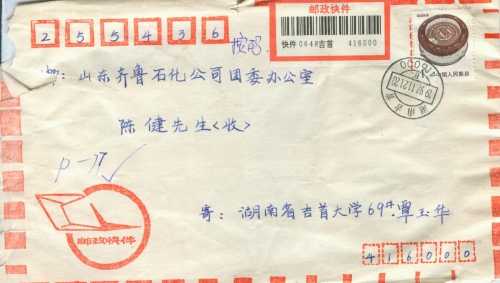 255436
邮政快件
快件 0648吉首 416000
中国人民邮政
山东齐鲁石化公司团委办公室
陈健先生<收>
P-17
邮政快件
寄: 湖南省吉首大学69#覃玉华
416000